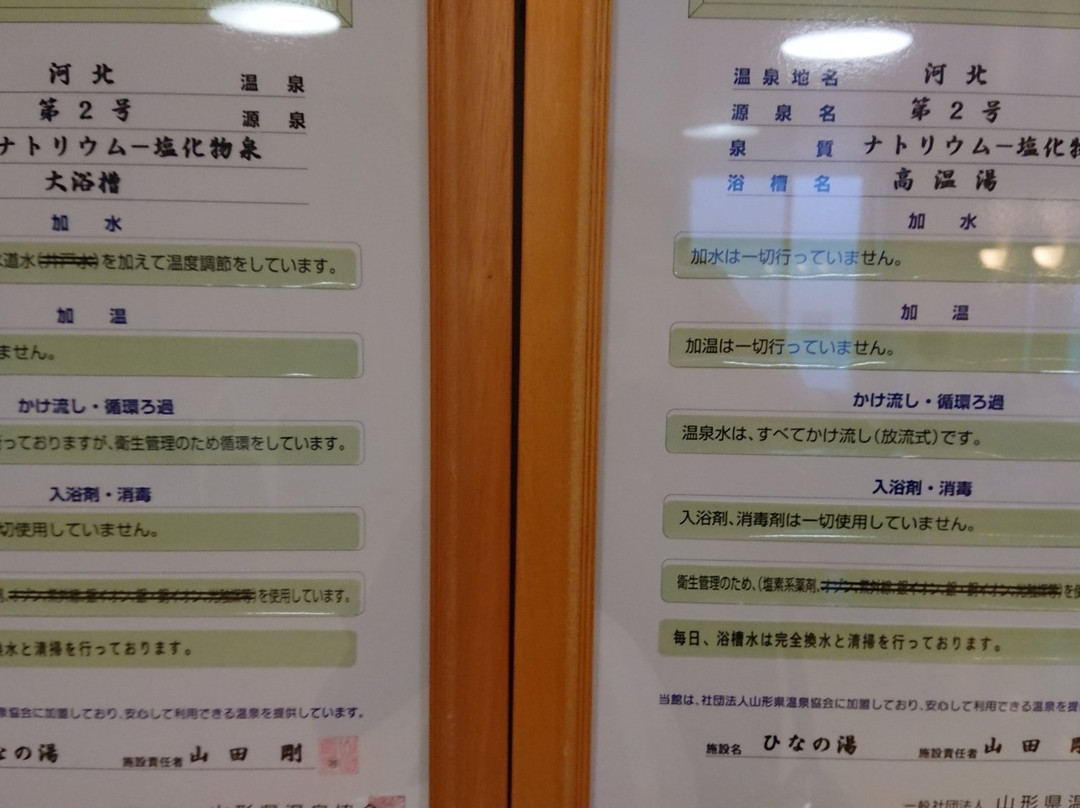 河北
第2号
ナトリウムー塩化物泉
大浴槽
加水
道水(井戸水)を加えて温度調節をしています。
加温
ません。
かけ流し・循環ろ過
っておりますが、衛生管理のため循環をしています。
入浴剤・消毒
切使用していません。
オゾン、紫外線、銀イオン、銀・銅イオン、光触媒等)を使用しています。
換水と清掃を行っております。
泉協会に加盟しており、安心して利用できる温泉を提供しています。
なの湯 施設責任者 山田 剛
山形県温泉協会
温泉
源泉
温泉地名 河北
源泉名 第2号
泉質 ナトリウムー塩化物
浴槽名 高温湯
加水
加水は一切行っていません。
加温
加温は一切行っていません。
かけ流し・循環ろ過
温泉水は、すべてかけ流し(放流式)です。
入浴剤・消毒
入浴剤、消毒剤は一切使用していません。
衛生管理のため、(塩素系薬剤、オゾン、紫外線、銀イオン、銀・銅イオン、光触媒等)を使
毎日、浴槽水は完全換水と清掃を行っております。
当館は、社団法人山形県温泉協会に加盟しており、安心して利用できる温泉を提
施設名 ひなの湯 施設責任者 山田
一般社団法人 山形県